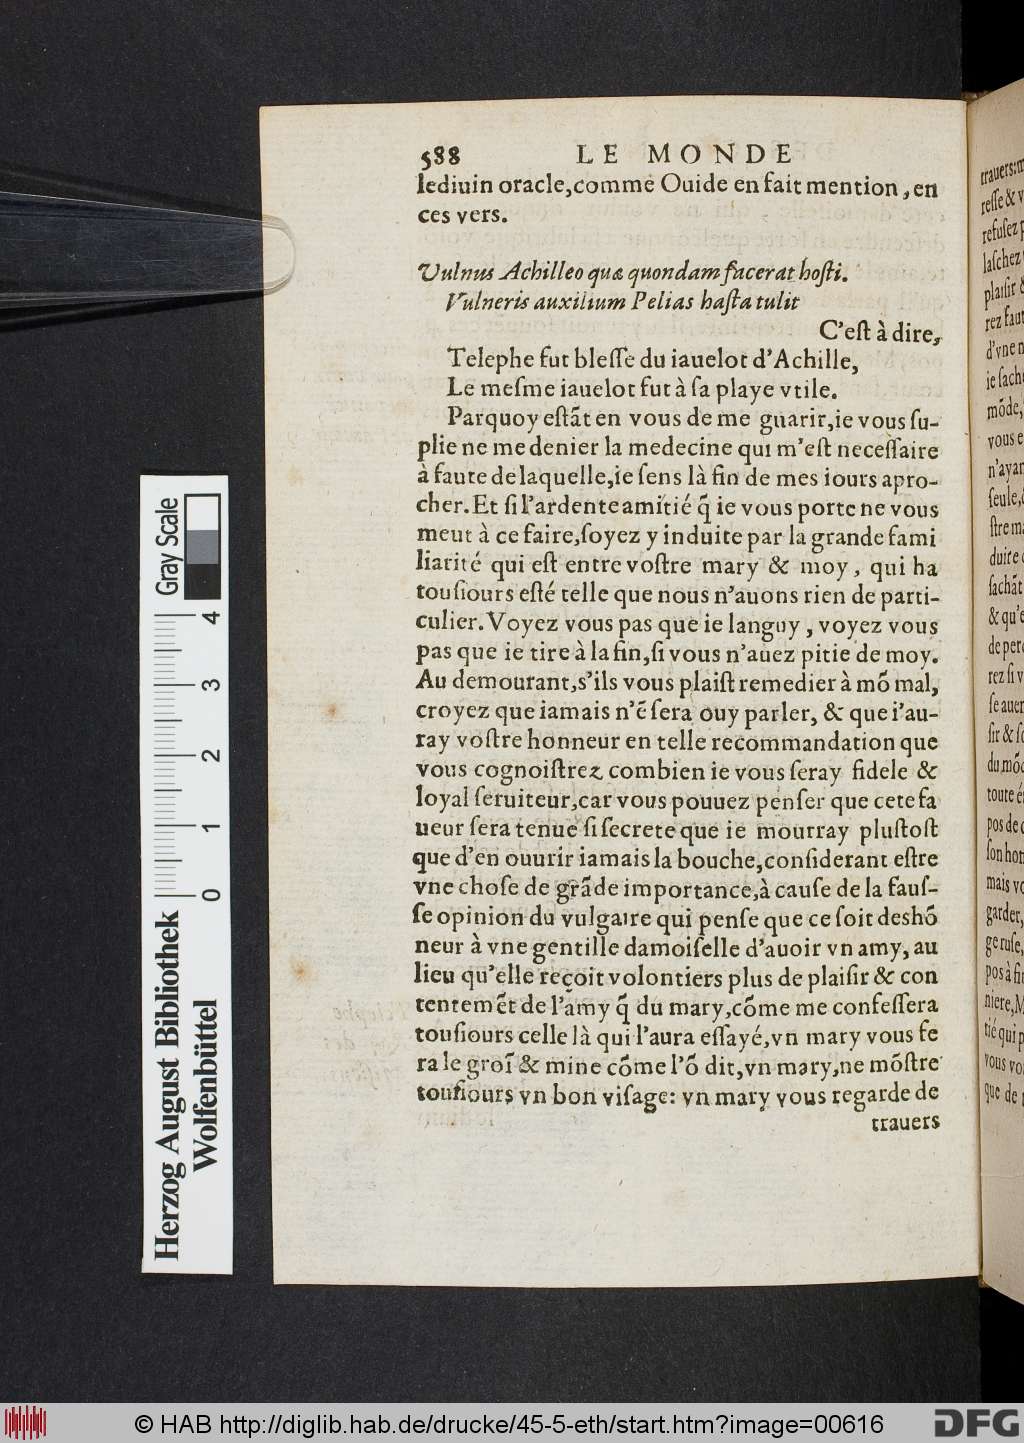 588 LE MONDE
lediuin oracle,comme Ouide en fait mention, en
ces vers.
Vulnus Achilleo quæ quondam facerat hoſti.
Vulneris auxilium Pelias haſta tulit
C'eſt à dire,
Telephe fut bleſſe du iauelot d'Achille,
Le meſme iauelot fut à ſa playe vtile.
Parquoy eſtãt en vous de me guarir,ie vous ſu-
plie ne me denier la medecine qui m'eſt neceſſaire
à faute de laquelle,ie ſens là fin de mes iours apro-
cher.Et ſi l'ardente amitié q̃ ie vous porte ne vous
meut à ce faire,ſoyez y induite par la grande fami
liarité qui eſt entre voſtre mary & moy, qui ha
touſiours eſté telle que nous n'auons rien de parti-
culier.Voyez vous pas que ie languy, voyez vous
pas que ie tire à la fin,ſi vous n'auez pitie de moy.
Au demourant,s'ils vous plaiſt remedier à mõ mal,
croyez que iamais n'ẽ ſera ouy parler, & que i'au-
ray voſtre honneur en telle recommandation que
vous cognoiſtrez combien ie vous ſeray fidele &
loyal ſeruiteur,car vous pouuez penſer que cete fa
ueur ſera tenue ſi ſecrete que ie mourray pluſtoſt
que d'en ouurir iamais la bouche,conſiderant eſtre
vne choſe de grãde importance,à cauſe de la fauſ-
ſe opinion du vulgaire qui penſe que ce ſoit deshõ
neur à vne gentille damoiſelle d'auoir vn amy, au
lieu qu'elle reçoit volontiers plus de plaiſir & con
tentemẽt de l'amy q̃ du mary,cõme me confeſſera
touſiours celle là qui l'aura eſſayé,vn mary vous fe
ra le groĩ & mine cõme l'õ dit,vn mary,ne mõſtre
touſiours vn bon viſage: vn mary vous regarde de
trauers
trauers:m
reſſe & v
refuſez p
laſchez
plaiſir &
rez faut
d'vne n
ie ſache
mõde,
vous e
n'ayan
ſeule,
ſtre ma
duire
ſachãt
& qu'e
de per
rez ſi v
ſe auer
ſir & ſo
du mõ
toute é
pos de
ſon hon
mais vo
garder,
ge ruſe,
pos à fi
niere,M
tié qui p
vous vo
que de
Gray Scale
0 1 2 3 4
Herzog August Bibliothek
Wolfenbüttel
© HAB http://diglib.hab.de/drucke/45-5-eth/start.htm?image=00616
DFG